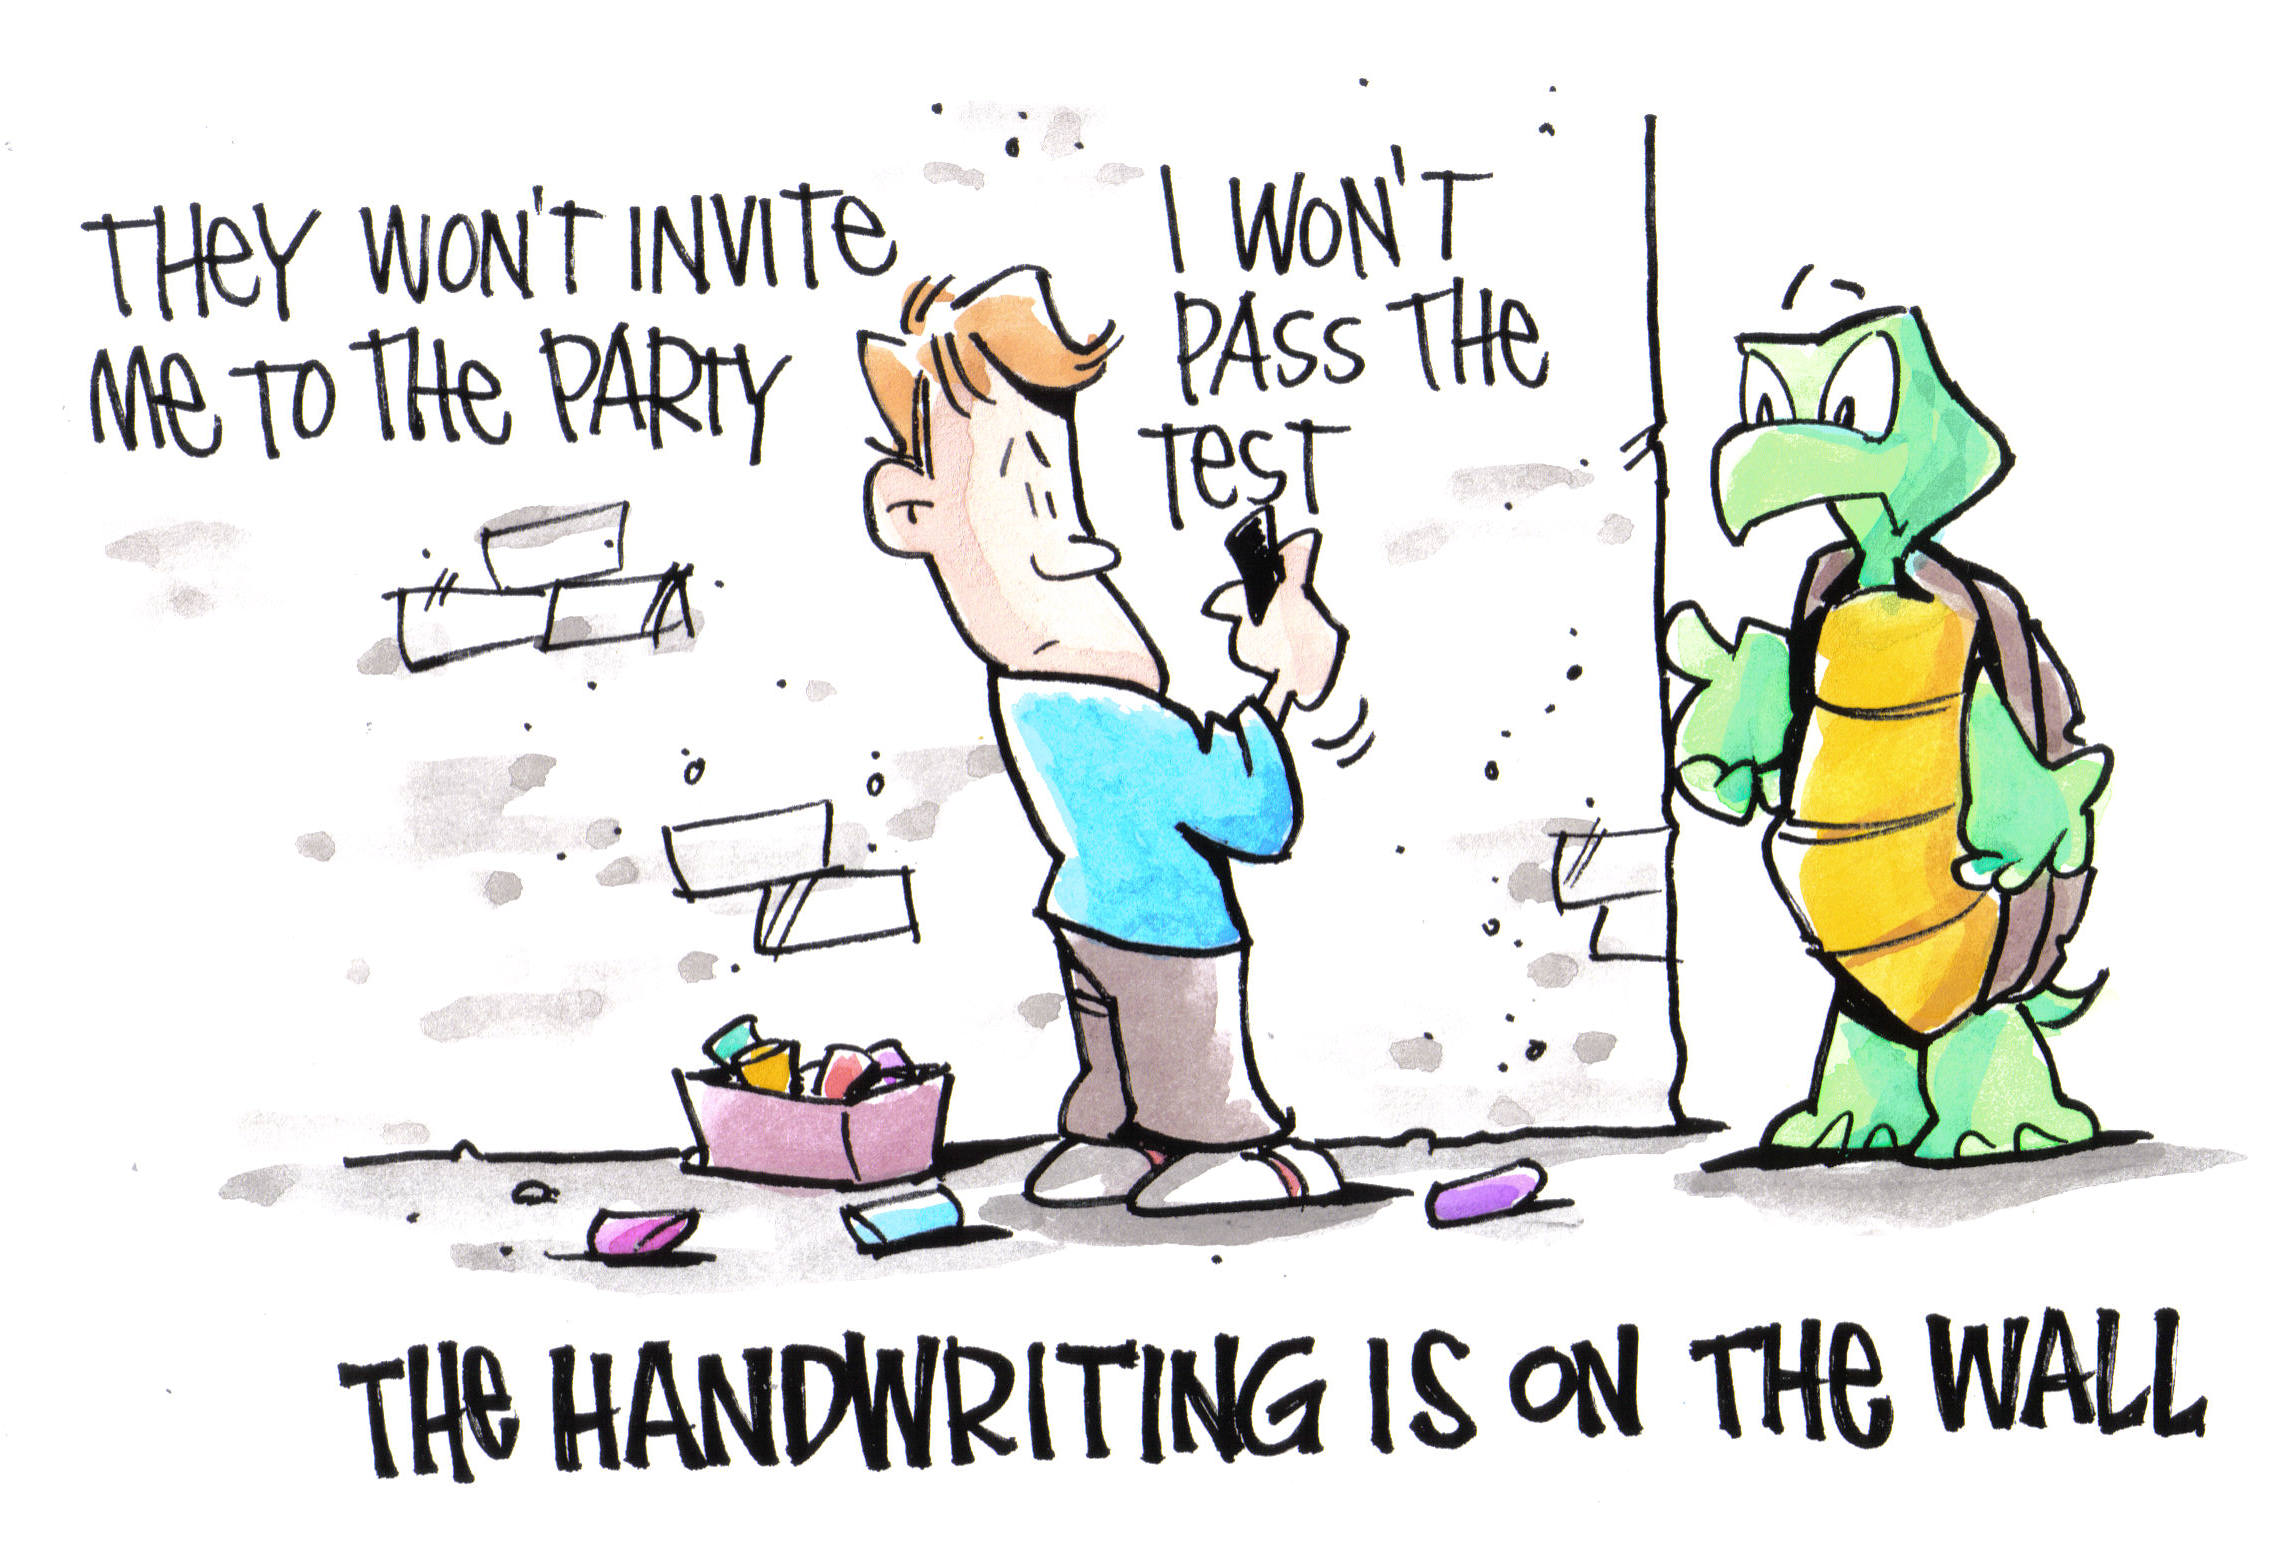 THEY WON'T INVITE
ME TO THE PARTY
I WON'T
PASS THE
TEST
THE HANDWRITING IS ON THE WALL